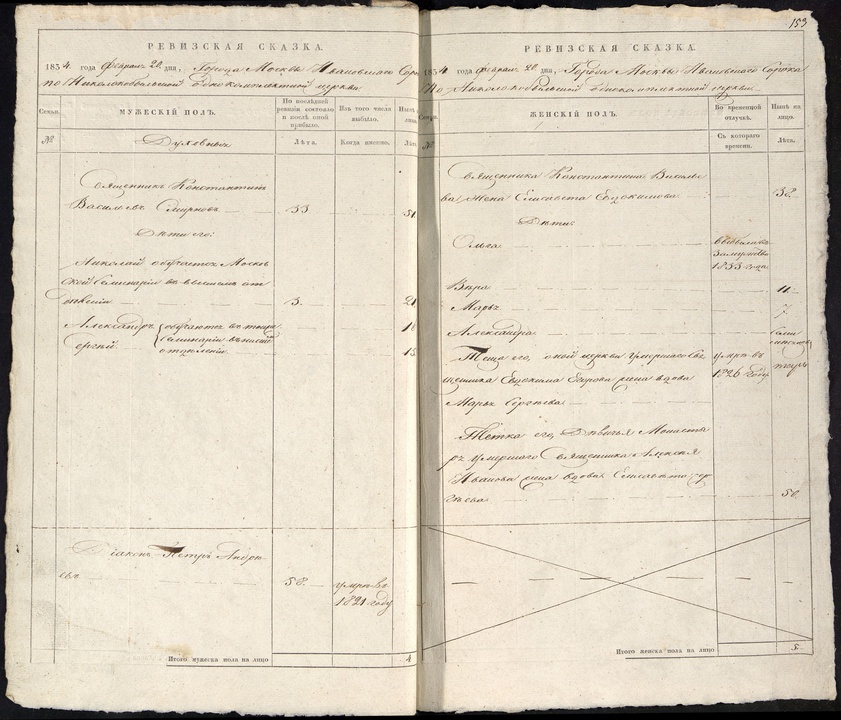 РЕВИЗСКАЯ СКАЗКА.
1834 года февраля 20 дня, Города Москвы Ивановскаго Соро
по Николокобыльской однокомплектной церкви
Семьи.
МУЖЕСКІЙ ПОЛЪ.
По последней ревизіи состояло и после оной прибыло.
Изъ того числа выбыло.
Ныне на лицо.
№
Духовныхъ
Лѣта.
Когда именно.
Лѣта
Священникъ Константинъ
Васильевъ Смирновъ 33 51
Дѣти его:
Николай обучается Москов
ской Семинаріи въ высшемъ от
дѣленіи 3. 21
Александръ обучаются въ той
Сергѣй Семинаріи въ низшем
отдѣленіи 15
Діаконъ Петръ Андрѣ
евъ 58. умре въ
1821 году
Итого мужеска пола на лицо 4
153
РЕВИЗСКАЯ СКАЗКА.
1834 года февраля 20 дня, Города Москвы Ивановскаго Сорока
по Николокобыльской однокомплектной церкви
Семьи.
ЖЕНСКІЙ ПОЛЪ.
Во временной отлучкѣ.
Ныне на лицо.
№
Съ котораго времени.
Лѣта.
Священника Константина Василье
ва Жена Елисавета Евдокимова 38.
Дѣти:
Ольга. выбыла въ
Замужство
1833 года
Вѣра 11
Марья 7.
Александра.
Теща его, оной церкви умершаго Свя
щенника Евдокима Егорова жена вдова
Марья Сергѣева умре въ
1826 году
Тетка его, Дѣвичья Монасты
ря умершаго Священника Алексѣя
Иванова жена вдова Елисавета Сер
гѣева 50
Итого женска пола на лицо 5.